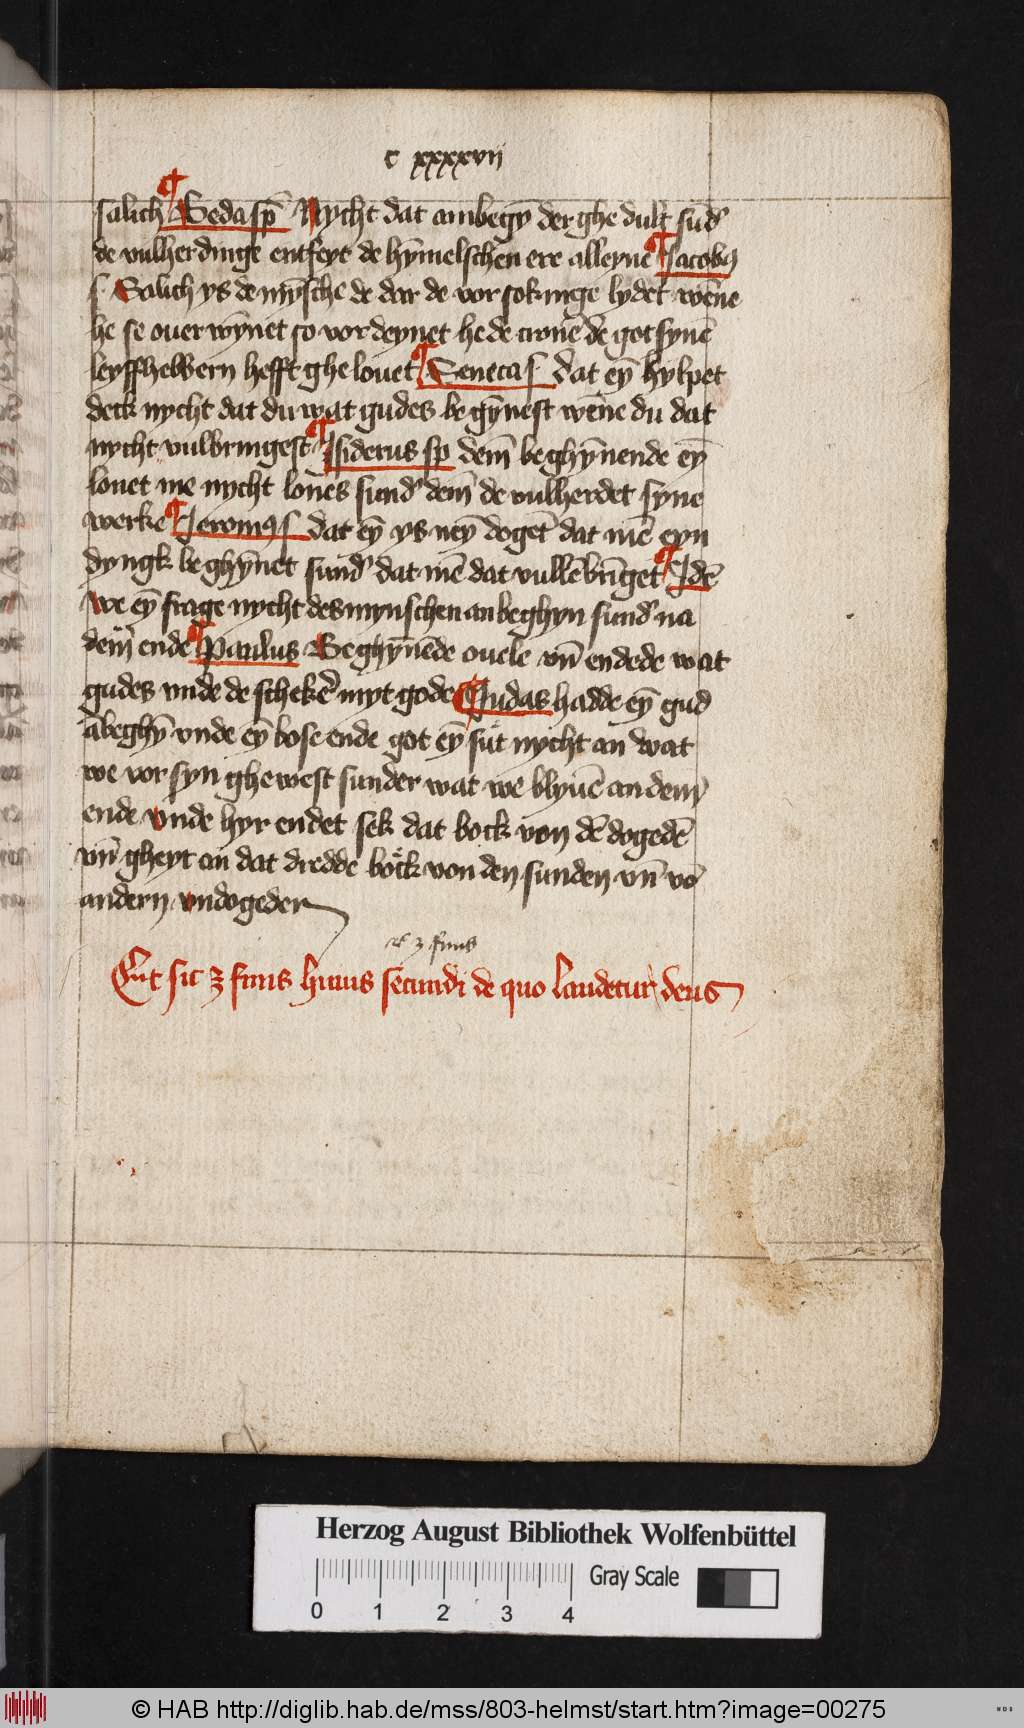 c xxxxvii
salich ¶ Beda sp̄ Nycht dat ambegȳ der ghe dult sud᷒
de vulherdinge entfeyt de hȳmelschen ere alleyne ¶ Jacobꝯ
s. Salich ys de mȳsche de dar de vor sokinge lydet wēne
he se ouer wȳnet so vor deynet he de crone de got synē
leyffhebbern hefft ghe louet ¶ Seneca s. dat eȳ hylpet
deck nycht dat du wat gudes be gȳnest wēne du dat
nycht vulbringest ¶ Jsiderus sp dem̄ beghȳnende eȳ
louet me nycht lones sund᷒ dem̄ de vulherdet syne
werke ¶ Jeronimꝯ s. dat eȳ ys neȳ dogēt dat mē eyn
dyngk be ghȳnet sund᷒ dat mē dat vullē brīget ¶ Jdē
we eȳ frage nycht des mynschen an beghyn sund᷒ na
dem̄ ende ¶ Paulus Beghȳnēde ouele vn̄ endede wat
gudes vnde de scheker᷒ myt gode ¶ Judas hadde eȳ gud
ābeghȳ vnde eȳ bose ende got eȳ sut nycht an wat
we vor syn ghewest sunder wat we blyuē an dem
ende vnde hyr endet sek dat bock von dē dogedē
vn̄ gheyt an dat dredde bock von den sunden vn̄ vō
andern vndogeden
ꝫ finis
Et sic ꝫ finis huius secundi de quo laudetur deus
Herzog August Bibliothek Wolfenbüttel
Gray Scale
0 1 2 3 4
© HAB http://diglib.hab.de/mss/803-helmst/start.htm?image=00275